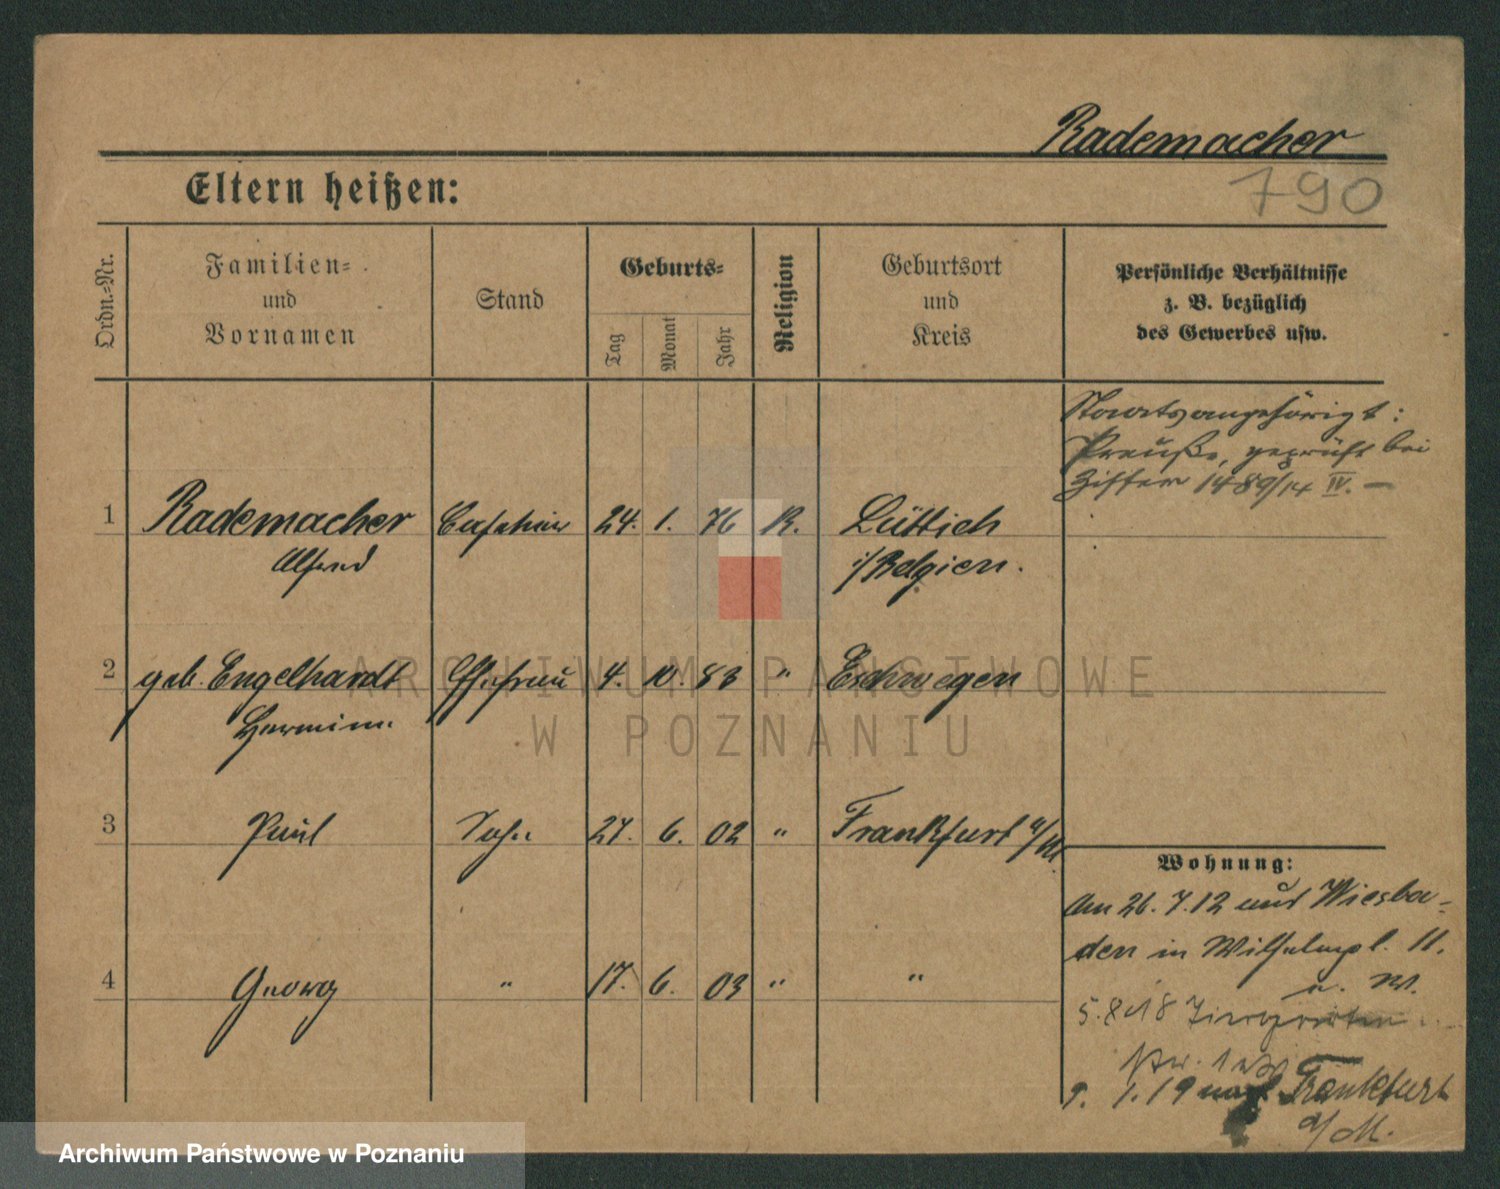 Rademacher
Eltern heißen:
790
Ordn.-Nr.
Familien-
und
Vornamen
Stand
Geburts-
Tag
Monat
Jahr
Religion
Geburtsort
und
Kreis
Persönliche Verhältnisse
z. B. bezüglich
des Gewerbes usw.
Staatsangehörigk:
Preuße, geprüft bei
Ziffer 1489/14 IV. —
1 Rademacher 24. 1. 76 R. Lüttich
Alfred i/Belgien.
2 geb. Engelhardt Ehefrau 4. 10. 83 " Eschwegen
Hermine
3 Paul Sohn 27. 6. 02 " Frankfurt a/M.
4 Georg " 17. 6. 03 " "
Wohnung:
Am 26. 7. 12 aus Wiesba-
den in Wilhelmpl. 11.
u. W.
5. 8. 18 Tiergarten
9. 1. 19 nach Frankfurt
a/M.
ARCHIWUM PAŃSTWOWE
W POZNANIU
Archiwum Państwowe w Poznaniu